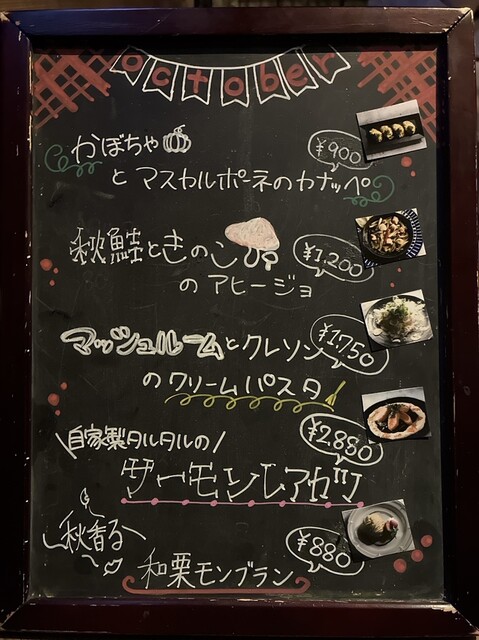 October
かぼちゃ
¥900
とマスカルポーネのカナッペ
秋鮭ときのこ
¥1,200
のアヒージョ
マッシュルームとクレソン
¥1,750
のクリームパスタ
自家製タルタルの
¥2,880
サーモンレアカツ
秋香る
¥880
和栗モンブラン